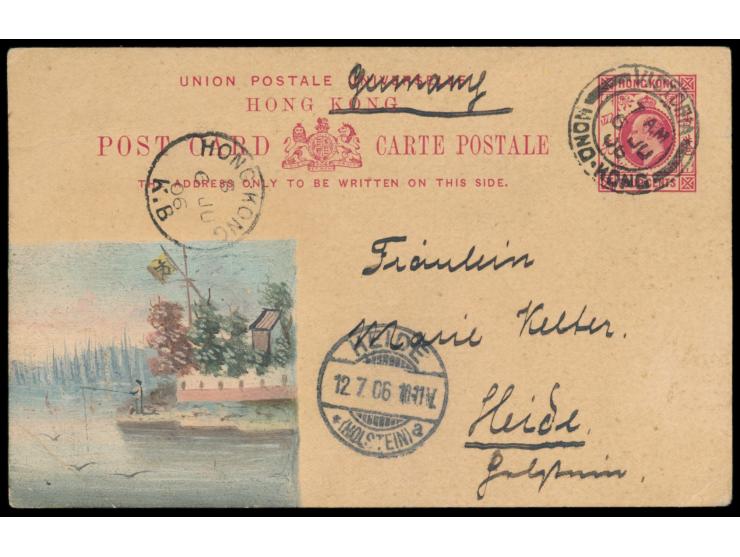 UNION POSTALE UNIVERSELLE
Germany
HONG KONG
POST CARD CARTE POSTALE
THE ADDRESS ONLY TO BE WRITTEN ON THIS SIDE.
HONGKONG
VICTORIA
HONG-KONG
AM
JU
06
HONG KONG
B
6 JU
06
K.B
Fräulein
Marie Kelter.
HEIDE
12.7.06 10-11V.
*(HOLSTEIN) a
Heide.
Holstein.